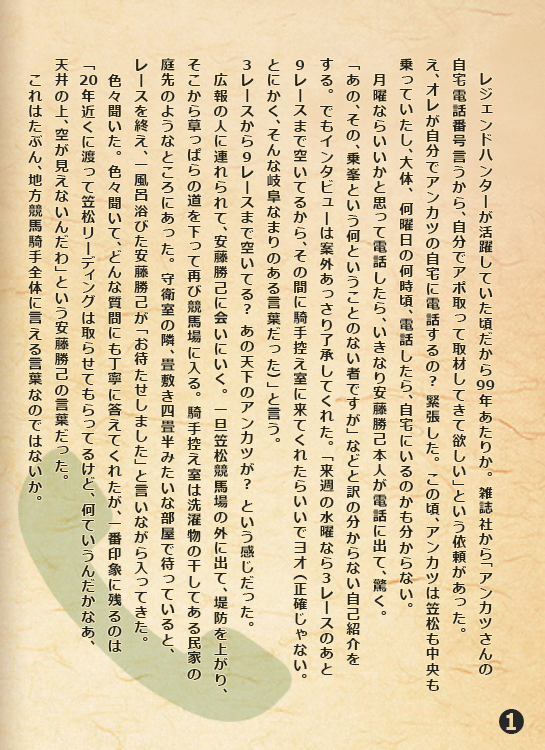 レジェンドハンターが活躍していた頃だから99年あたりか。雑誌社から「アンカツさんの
自宅電話番号言うから、自分でアポ取って取材してきて欲しい」という依頼があった。
え、オレが自分でアンカツの自宅に電話するの？ 緊張した。この頃、アンカツは笠松も中央も
乗っていたし、大体、何曜日の何時頃、電話したら、自宅にいるのかも分からない。
月曜ならいいかと思って電話したら、いきなり安藤勝己本人が電話に出て、驚く。
「あの、その、乗峯という何ということのない者ですが」などと訳の分からない自己紹介を
する。でもインタビューは案外あっさり了承してくれた。「来週の水曜なら3レースのあと
9レースまで空いてるから、その間に騎手控え室に来てくれたらいいでヨオ（正確じゃない。
とにかく、そんな岐阜なまりのある言葉だった）」と言う。
3レースから9レースまで空いてる？ あの天下のアンカツが？ という感じだった。
広報の人に連れられて、安藤勝己に会いにいく。一旦笠松競馬場の外に出て、堤防を上がり、
そこから草っぱらの道を下って再び競馬場に入る。騎手控え室は洗濯物の干してある民家の
庭先のようなところにあった。守衛室の隣、畳敷き四畳半みたいな部屋で待っていると、
レースを終え、一風呂浴びた安藤勝己が「お待たせしました」と言いながら入ってきた。
色々聞いた。色々聞いて、どんな質問にも丁寧に答えてくれたが、一番印象に残るのは
「20年近くに渡って笠松リーディングは取らせてもらってるけど、何ていうんだかなあ、
天井の上、空が見えないんだわ」という安藤勝己の言葉だった。
これはたぶん、地方競馬騎手全体に言える言葉なのではないか。
1